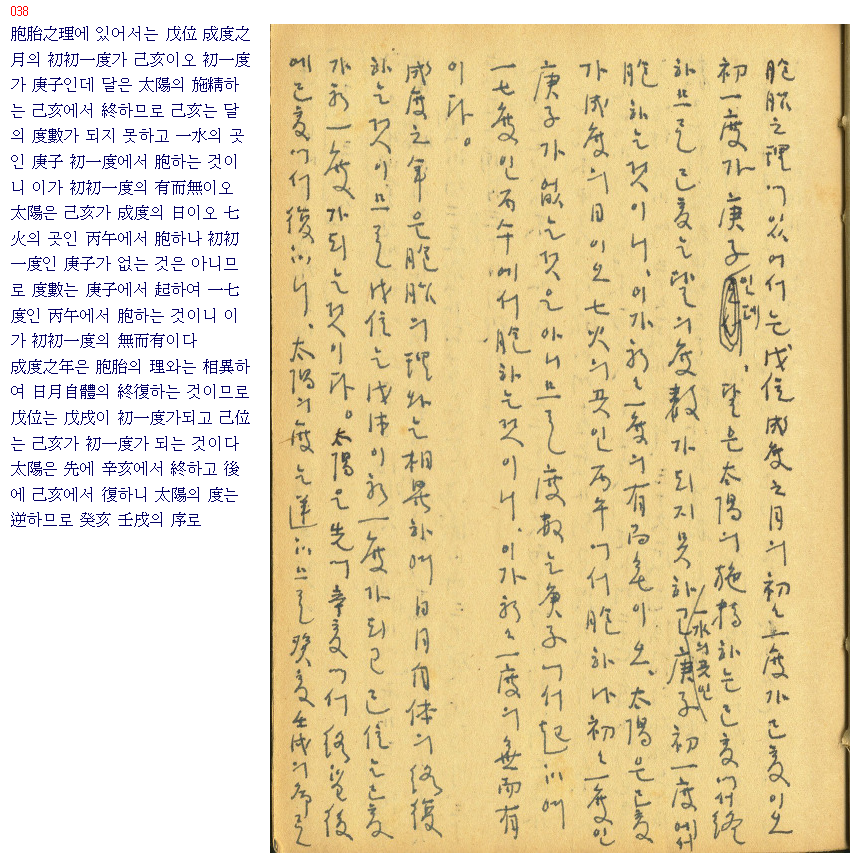 038
胞胎之理에 있어서는 戊位 成度之
月의 初初一度가 己亥이오 初一度
가 庚子인데 달은 太陽의 施精하
는 己亥에서 終하므로 己亥는 달
의 度數가 되지 못하고 一水의 곳
인 庚子 初一度에서 胞하는 것이
니 이가 初初一度의 有而無이오
太陽은 己亥가 成度의 日이오 七
火의 곳인 丙午에서 胞하나 初初
一度인 庚子가 없는 것은 아니므
로 度數는 庚子에서 起하여 一七
度인 丙午에서 胞하는 것이니 이
가 初初一度의 無而有이다
成度之年은 胞胎의 理와는 相異하
여 日月自體의 終復하는 것이므로
戊位는 戊戌이 初一度가되고 己位
는 己亥가 初一度가 되는 것이다
太陽은 先에 辛亥에서 終하고 後
에 己亥에서 復하니 太陽의 度는
逆하므로 癸亥 壬戌의 序로
胞胎之理에 있어서는 戊位 成度之月의 初々一度가 己亥이오
初一度가 庚子인데, 달은 太陽의 施精하는 己亥에서 終
하므로 己亥는 달의 度數가 되지 못하고 一水의 곳인 庚子 初一度에서
胞하는 것이니, 이가 初々一度의 有而無이오. 太陽은 己亥
가 成度의 日이오 七火의 곳인 丙午에서 胞하나 初々一度인
庚子가 없는 것은 아니므로 度數는 庚子에서 起하여
一七度인 丙午에서 胞하는 것이니, 이가 初々一度의 無而有
이다。
成度之年은 胞胎의 理와는 相異하여 日月自体의 終復
하는 것이므로 戊位는 戊戌이 初一度가 되고 己位는 己亥
가 初一度가 되는 것이다。太陽은 先에 辛亥에서 終하고 後
에 己亥에서 復하니, 太陽의 度는 逆하므로 癸亥 壬戌의 序로